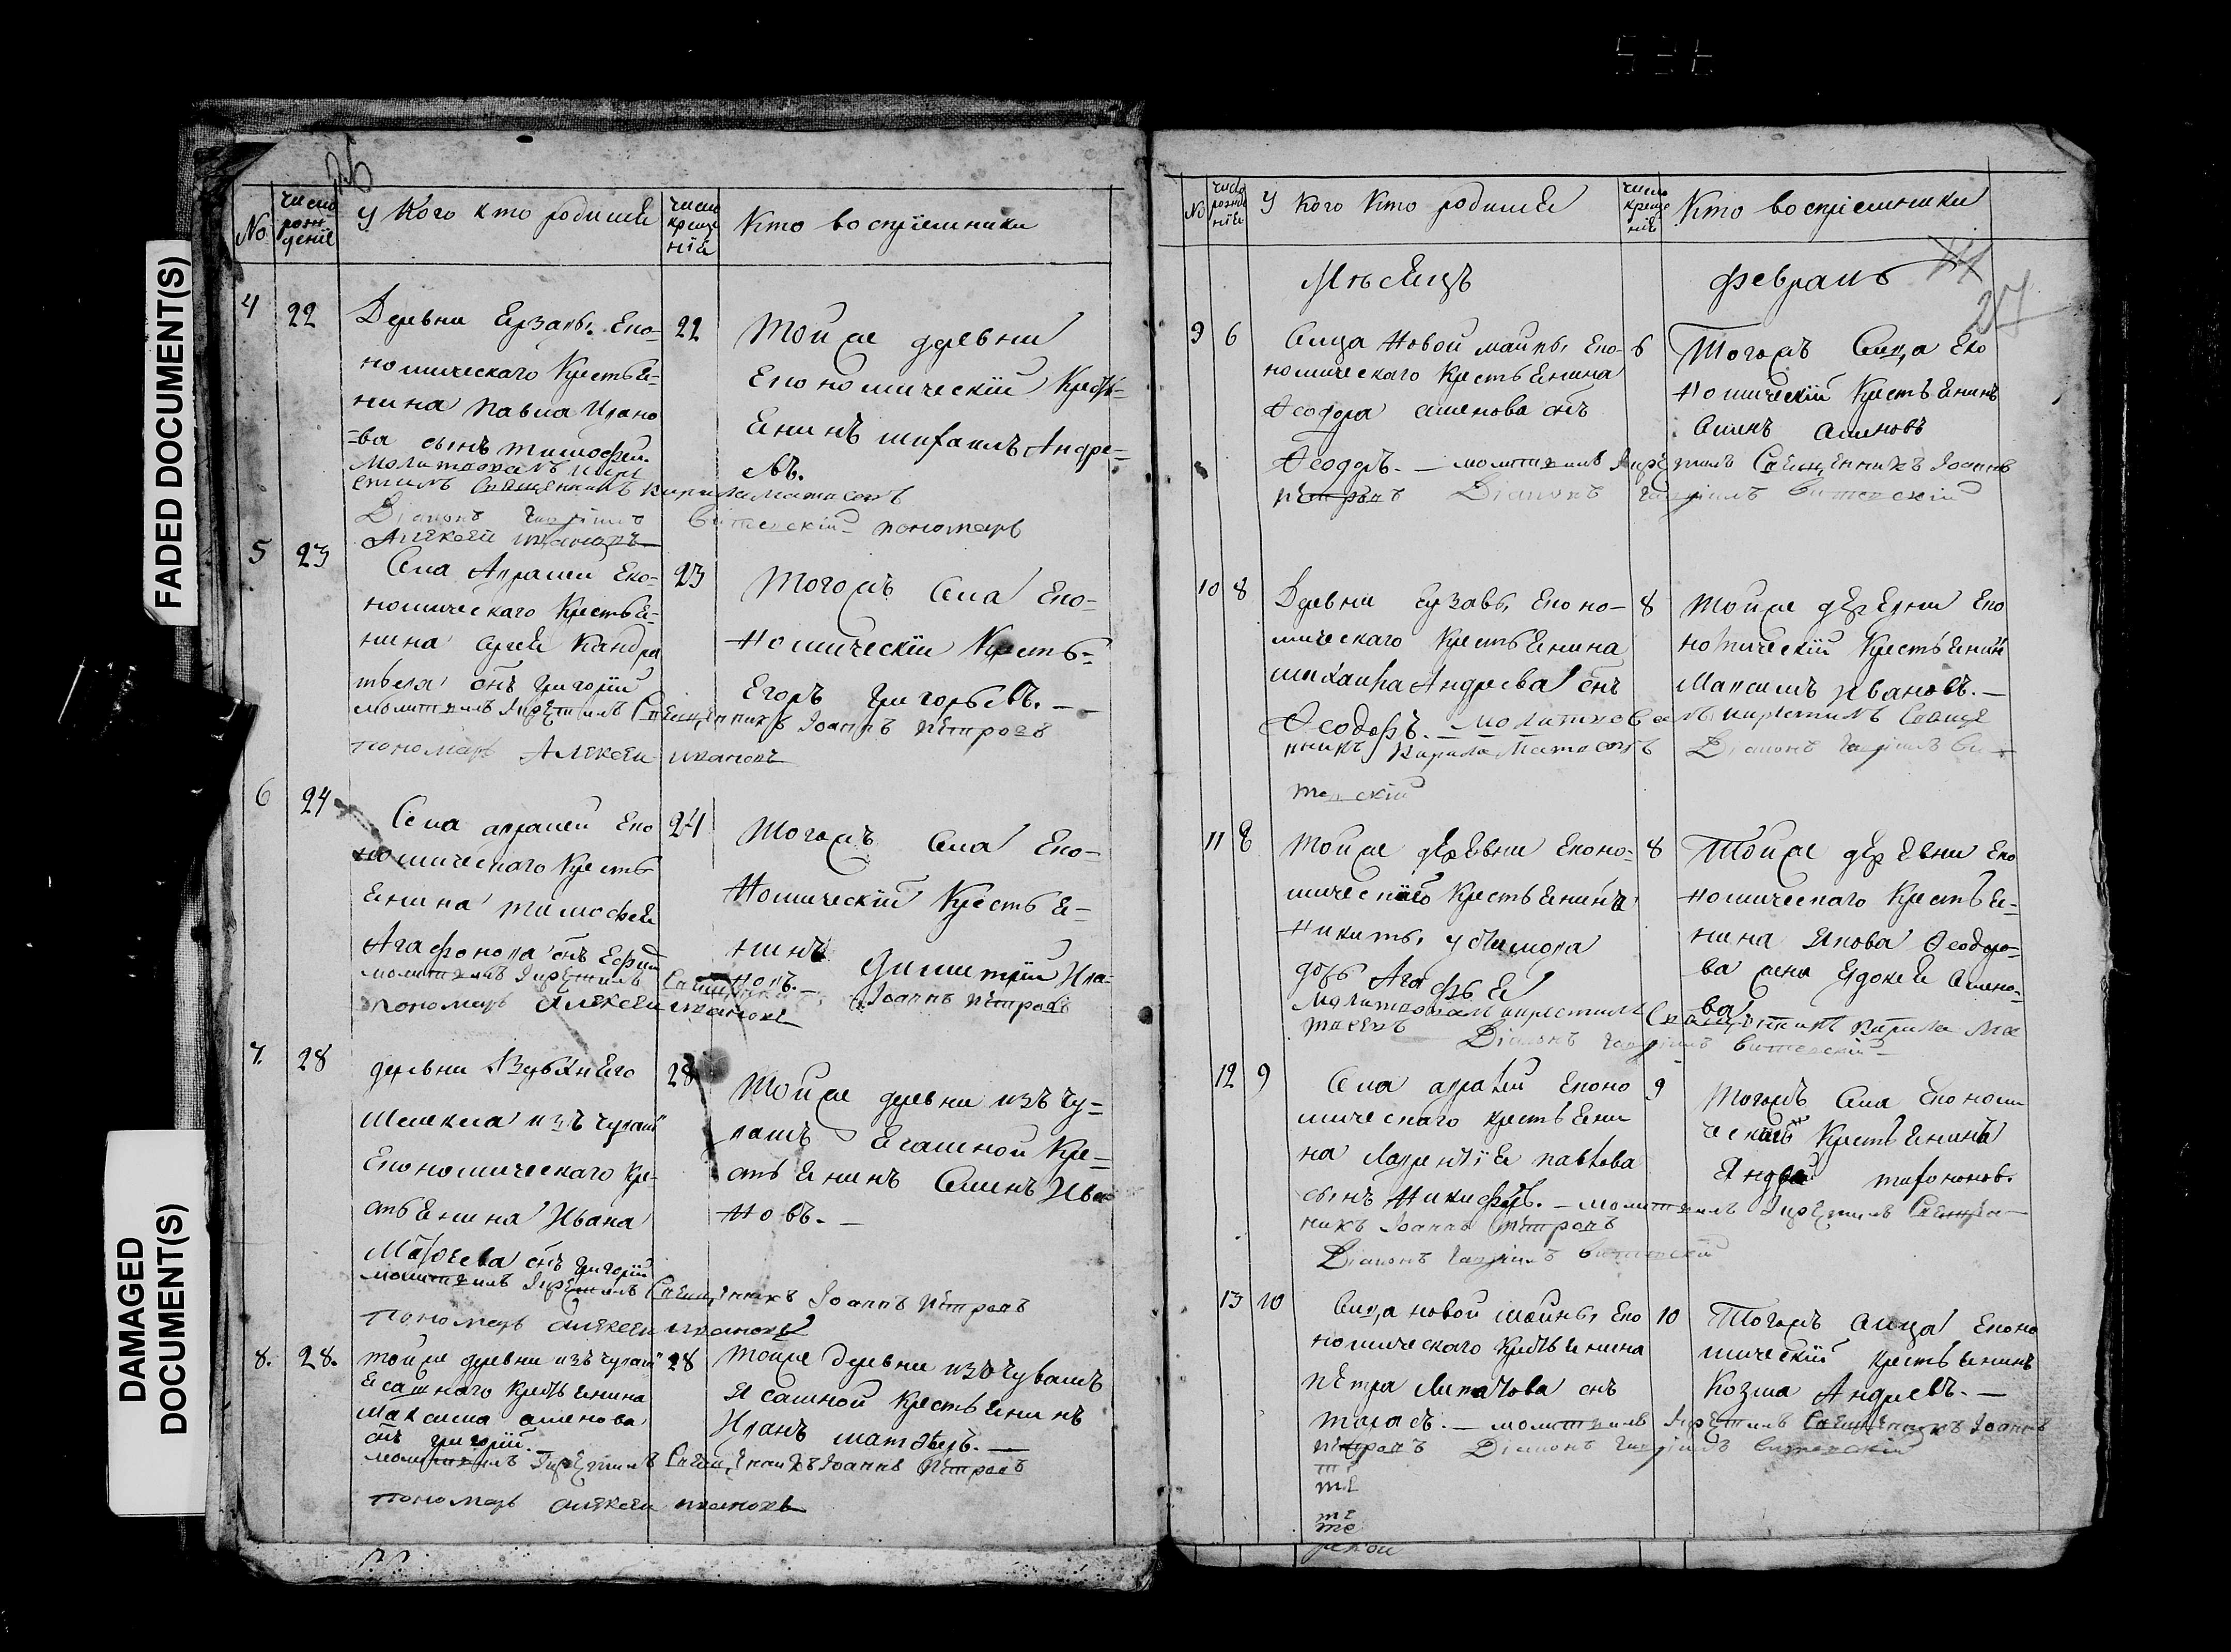 536
FADED DOCUMENT(S)
DAMAGED
DOCUMENT(S)
26
No
число рождение
У кого кто родился
число крещенія
Кто воспріемники
4
22
Деревни Ерзавы Еко-
номическаго Крестьѣ-
нина Павла Ивано
-ва сынъ тимофей.
молитвовалъ и кре
стилъ Священникъ Кирила Матвеевъ
Діаконъ Гавріилъ Витевскій пономарь
Алѣксѣй Ивановъ
22
Тойже деревни
Економическій Кресть-
Енинъ михаилъ Андре-
евъ.
5
23
Села Аправей Еко-
номическаго Крестьѣ-
нина Сергѣя Кандра
тьева снъ григорій
молитвилъ Iкрѣстилъ Свѣщенникъ Iоаннъ Пѣтровъ
пономарь Алѣксѣи ивановъ
23
Тогожъ Села Еко-
номическіи Кресть-
Егоръ григорьевъ. —
6
24
Села аправей Еко
номическаго Кресть
Енина тимофея
Агафонова снъ Ефим
молитвилъ Iкрѣстилъ Свѣщенникъ Iоаннъ Пѣтровъ
пономарь алѣксѣи ивановъ
24
Тогожъ Села Еко-
номическій КрестьЕ-
нинъ Димитрій Ива-
новъ. —
7.
28
деревни
изъ чувашъ
Економическаго Кре-
стьЕнина Ивана
снъ григорій
молитвилъ Iкрѣстилъ Свѣщѣнникъ Iоаннъ Пѣтровъ
пономарь алѣксѣи ивановъ
28
Тойже деревни изъ чу-
вашъ Есашной Кре-
стьЕнинъ Семенъ Ива
новъ. —
8.
28.
тойже деревни изъ чувашъ
Есашнаго КрестьЕнина
Максима семенова
снъ григорій.
молитвилъ Iкрѣстилъ Свѣщѣнникъ Iоаннъ Пѣтровъ
пономарь алѣксѣи ивановъ
28
тойже деревни изъ чувашъ
Ясашной КрестьЕнинъ
Иванъ матвѣевъ. —
No
число рожденіе
У кого кто родился
число крещеніе
Кто воспріемники
27
Мѣсяцъ
февраль
9
6
Сельца Новой майны Еко-
номическаго КрестьЕнина
Ѳеодора семенова снъ
Ѳеодоръ. — молитвилъ Iкрѣстилъ Свѣщѣнникъ Iоаннъ
Пѣтровъ Діаконъ Гавріилъ Витевскій
6
Тогожъ Сельца Еко
номическій КрестьЕнинъ
Семенъ Семеновъ
10
8
Деревни Ерзавы Еконо-
мическаго КрестьЕнина
михаила Андреева снъ
Ѳеодоръ. — молитвовалъ икрестилъ Свяще
нникъ Кирила Матвеевъ Діаконъ Гавріилъ Ви-
тевскій
8
Тойже дерЕвни Еко
номическій КрестьЕнинъ
Максимъ ивановъ. —
11
8
Тойже дерЕвни Еконо-
мическаго КрестьЕнина
Никиты
дочь АгафьЕ
молитвовалъ икрестилъ Священникъ Кирила Ма
твеевъ Діаконъ Гавріилъ Витевскій
8
Тойже дерЕвни Еко
номическаго КрестьЕ-
нина Якова Ѳеодоро-
ва жена Евдокея Семено-
ва
12
9
Села аправей Еконо
мическаго крестьЕни
на Лаврентія павлова
сынъ Никифоръ. — молитвилъ Iкрѣстилъ Свѣщѣн-
никъ Iоаннъ Пѣтровъ
Діаконъ Гавріилъ Витевскій
9
Тогожъ Села Економи
ческій КрестьЕнинъ
Андрей
13
10
Сельца новой майны Еко
номическаго КрестьЕнина
пЕтра снъ
тарасъ. — молитвилъ Iкрѣстилъ Свѣщѣнникъ Iоаннъ
Пѣтровъ Діаконъ Гавріилъ Витевскій
10
Тогожъ сельца Еконо
мическій крестьЕнинъ
Козма Андреевъ. —